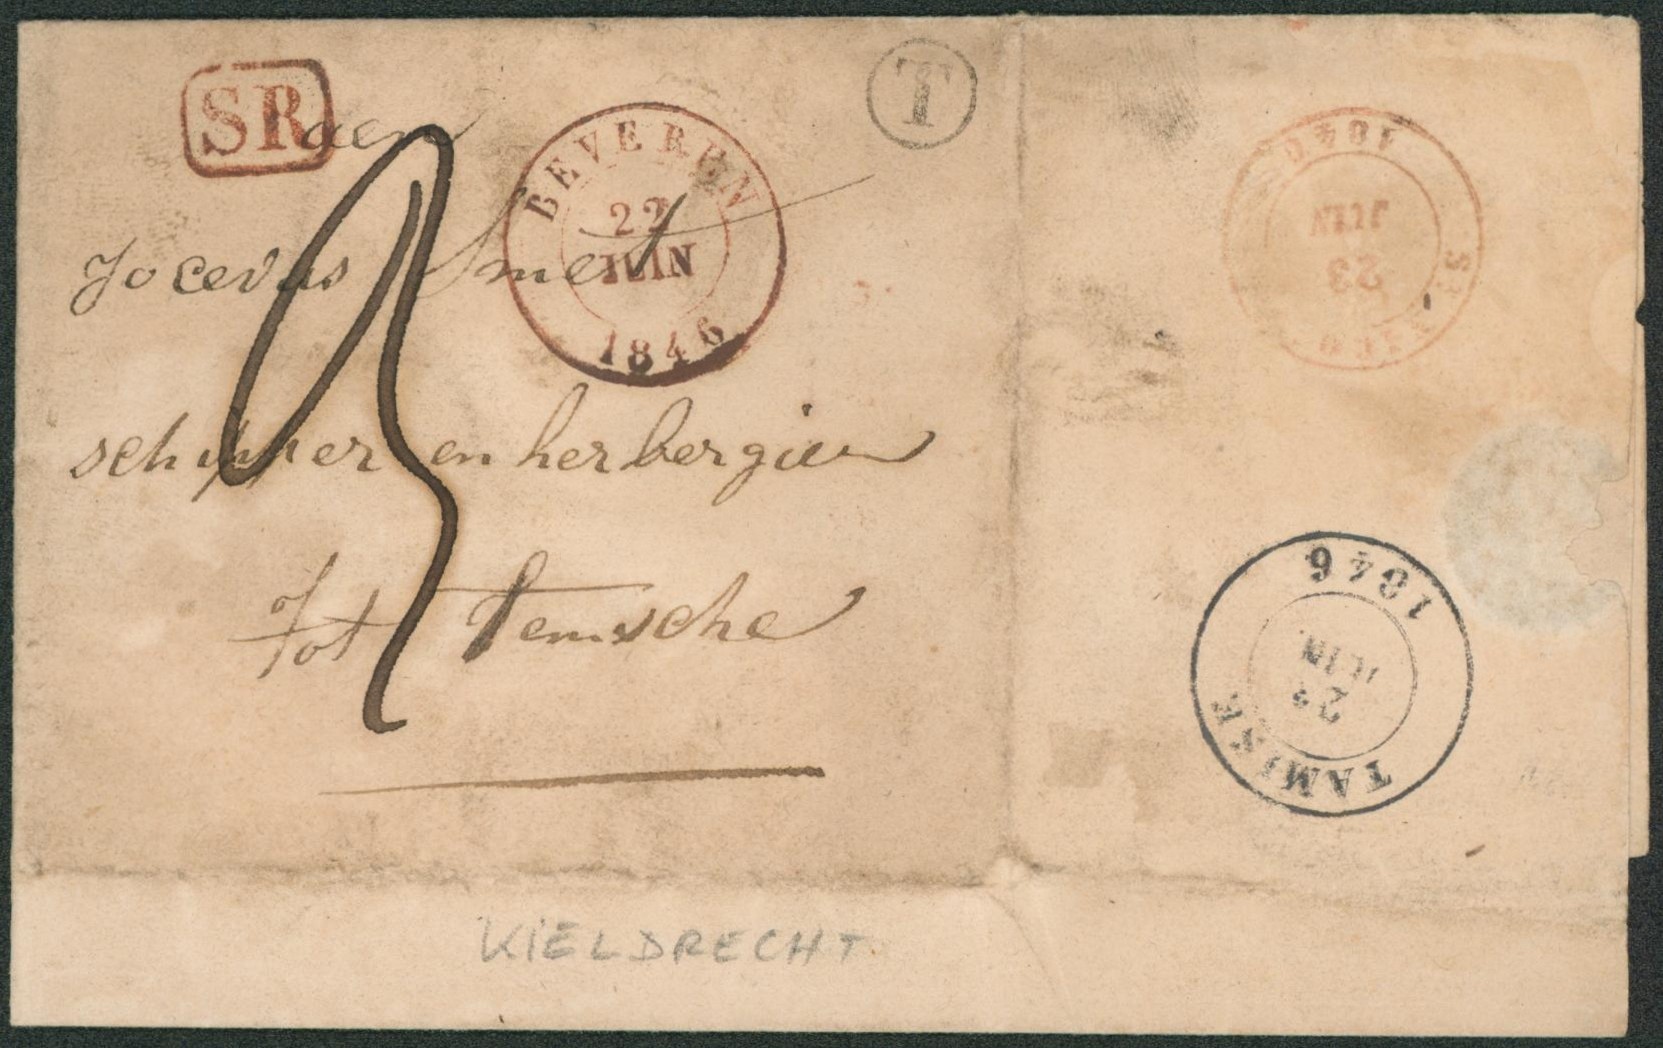 SR
T
BEVEREN
22
JUIN
1846
aen
Smet
schipper en herbergier
tot Temsche
3
JUIN
23
TAMISE
JUIN
1846
KIELDRECHT